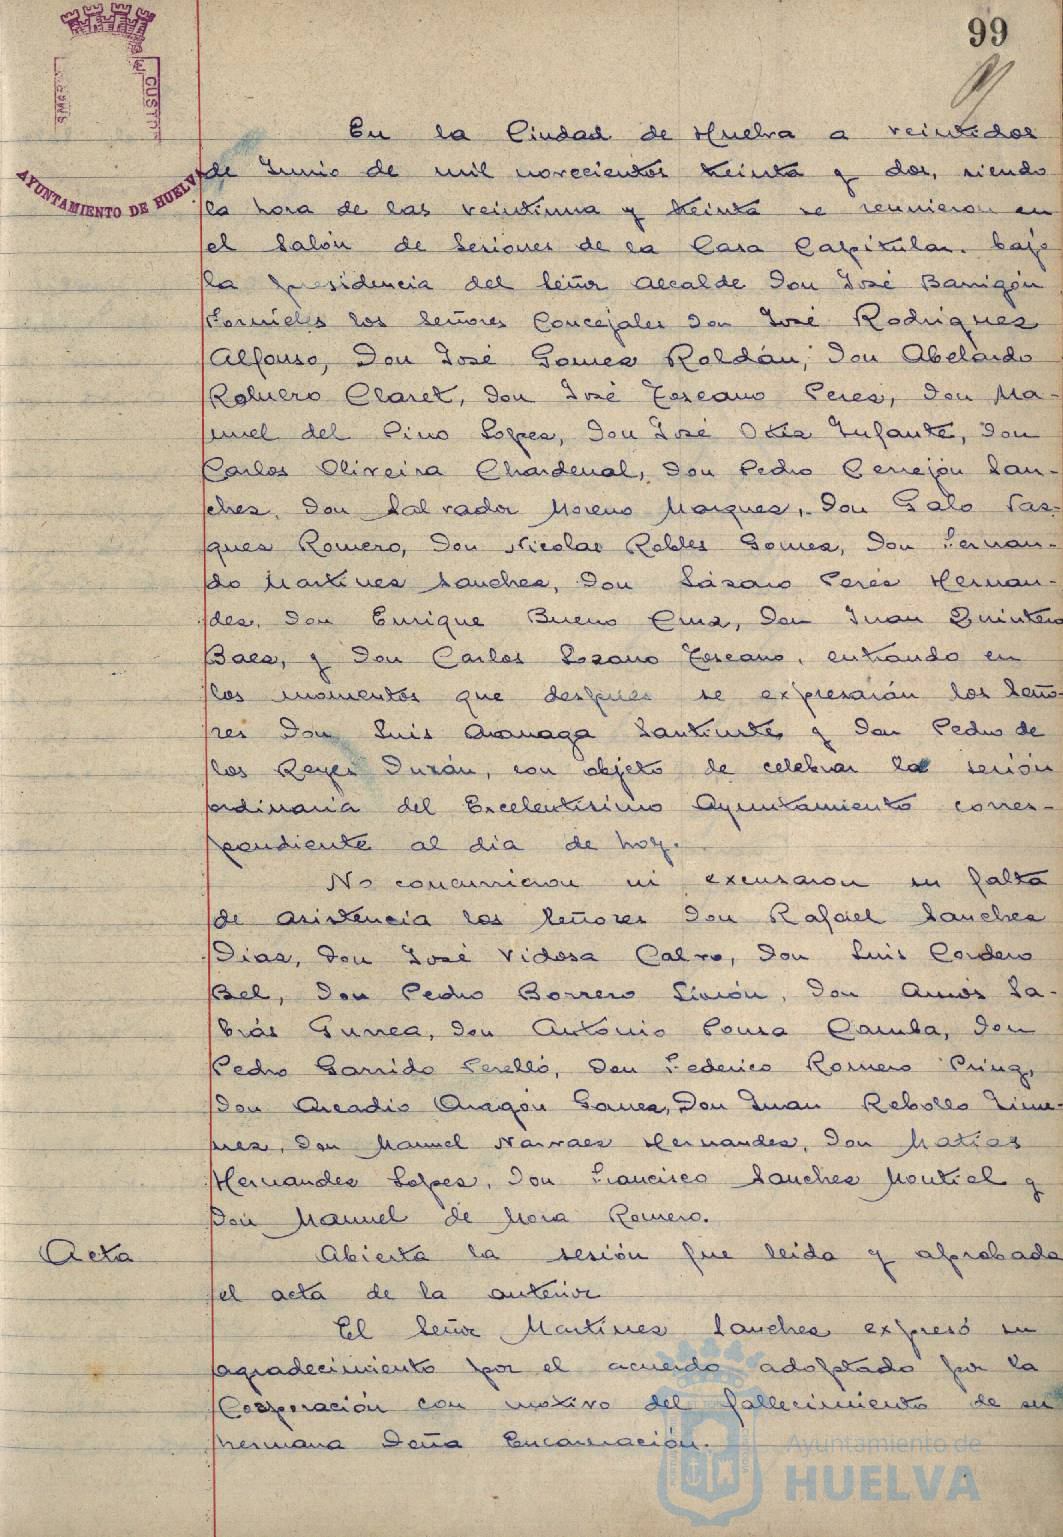 99
CUSTO
AYUNTAMIENTO DE HUELVA
En la Ciudad de Huelva a veintidos
de Junio de mil novecientos treinta y dos, siendo
la hora de las veintiuna y treinta se reunieron en
el Salón de Sesiones de la Casa Capitular. bajo
la presidencia del Señor Alcalde Don José Barrigón
Fornieles los Señores Concejales Don José Rodriguez
Alfonso, Don José Gomez Roldán, Don Abelardo
Romero Claret, Don José Toscano Perez, Don Ma-
nuel del Pino Lopez, Don José Ortiz Infante, Don
Carlos Oliveira Chardenal, Don Pedro Cerrejón San-
chez, Don Salvador Moreno Marquez, Don Galo Vaz-
quez Romero, Don Nicolas Robles Gomez, Don Fernan-
do Martinez Sanchez, Don Lázaro Perez Hernan-
dez, Don Enrique Bueno Cruz, Don Juan Quintero
Baez, y Don Carlos Lozano Toscano, entrando en
los momentos que despues se expresarán los Seño-
res Don Luis Aranaga Santiuste y Don Pedro de
los Reyes Durán, con objeto de celebrar la sesión
ordinaria del Excelentisimo Ayuntamiento corres-
pondiente al dia de hoy.
No concurrieron ni excusaron su falta
de asistencia los Señores Don Rafael Sanchez
Diaz, Don José Vidosa Calvo, Don Luis Cordero
Bel, Don Pedro Borrero Limón, Don Amós Sa-
brás Gurrea, Don Antonio Pousa Camba, Don
Pedro Garrido Perelló, Don Federico Romero Prinz,
Don Arcadio Aragón Gomez, Don Juan Rebollo Jime-
nez, Don Manuel Narvaez Hernandez, Don Matias
Hernandez Lopez, Don Francisco Sanchez Montiel y
Don Manuel de Mora Romero.
Acta
Abierta la sesión fue leida y aprobada
el acta de la anterior
El Señor Martinez Sanchez expresó su
agradecimiento por el acuerdo adoptado por la
Corporación con motivo del fallecimiento de su
hermana Doña Encarnación.
Ayuntamiento de
HUELVA